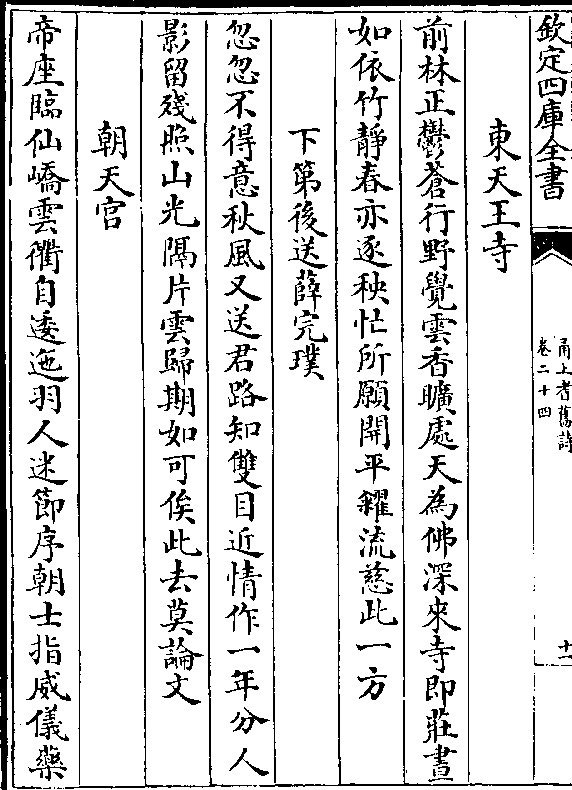 欽定四庫全書
甬上耆舊詩
卷二十四
十一
東天王寺
前林正鬱蒼行野覺雲香曠處天為佛深來寺即莊晝
如依竹靜春亦逐秧忙所願開平糴流慈此一方
下第後送薛完璞
忽忽不得意秋風又送君路知雙目近情作一年分人
影留殘照山光隔片雲歸期如可俟此去莫論文
朝天宮
帝座臨仙嶠雲衢自逶迤羽人迷節序朝士指威儀藥